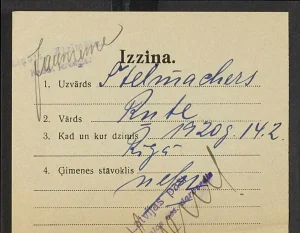 Izziņa.
1. Uzvārds Stelmachers
2. Vārds Rute
3. Kad un kur dzimis 1920 g 14.2.
Rīgā
4. Ģimenes stāvoklis neprec